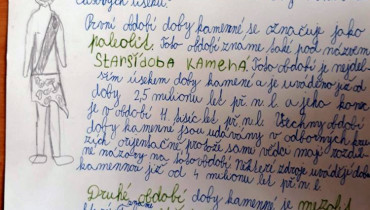 časových úseků.
První období doby kamenné se označuje jako
paleolit. Toto období známe také pod názvem
Starší doba kamená. Toto období je nejdel-
ším úsekem doby kamené a je uváděno již od
doby 2,5 milionu let př. n. l. a jeho konec
je v období 11 tisíc let př. n. l. Všechny období
doby kamenné jsou udávány v odborných kru-
zích orientačně protože sami vědci mají rozdíl-
né názory na toto období. Některé zdroje uvádějí dobu
kamennou již od 4 milionu let př. n. l.
Druhé období doby kamenné je mezolit